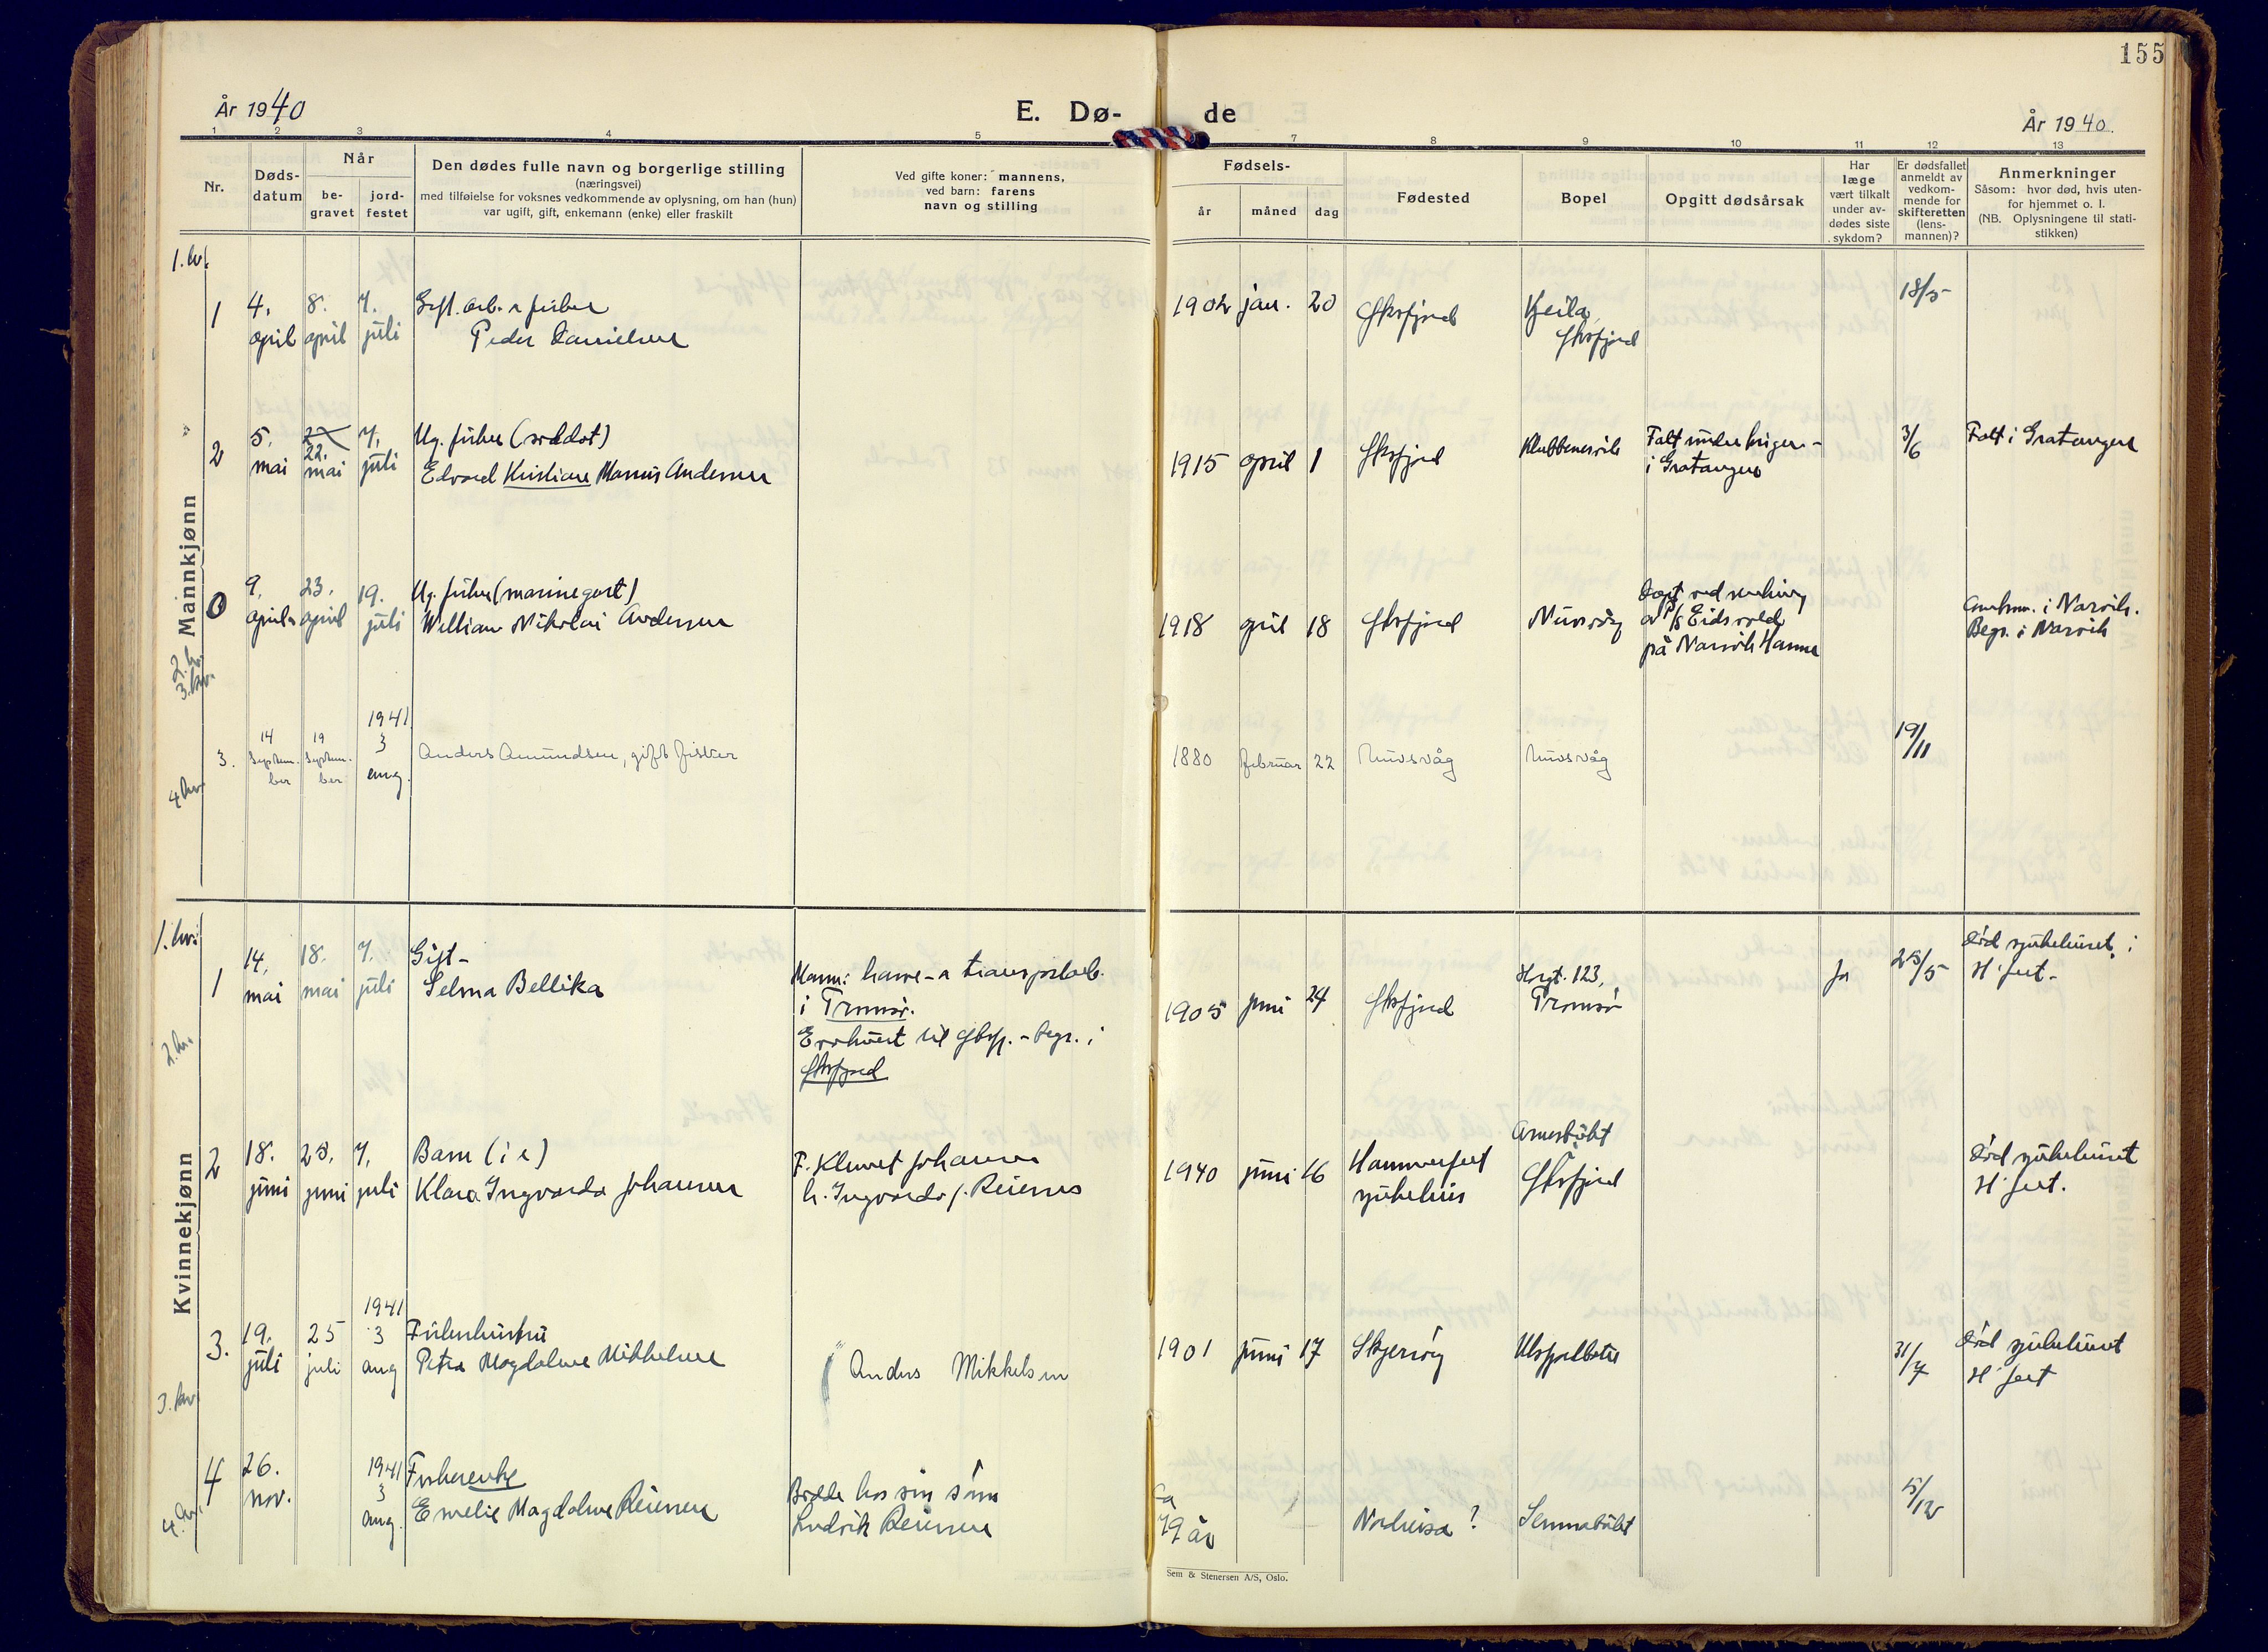 155
År 1940
E. Dø-
de
År 1940.
1 2 3 4 5 7 8 9 10 11 12 13
Nr.
Døds-
datum
Når
be-
gravet
jord-
festet
Den dødes fulle navn og borgerlige stilling
(næringsvei)
med tilføielse for voksnes vedkommende av oplysning, om han (hun)
var ugift, gift, enkemann (enke) eller fraskilt
Ved gifte koner: mannens,
ved barn: farens
navn og stilling
Fødsels-
år
måned
dag
Fødested
Bopel
Opgitt dødsårsak
Har
læge
vært tilkalt
under av-
dødes siste
sykdom?
Er dødsfallet
anmeldt av
vedkom-
mende for
skifteretten
(lens-
mannen)?
Anmerkninger
Såsom: hvor død, hvis uten-
for hjemmet o. l.
(NB. Oplysningene til stati-
stikken)
Mannkjønn
1.kv.
1
4.
april
8.
april
7.
juli
Gift. arb. & fisker
Peder Danielsen
1902 jan. 20
Øksfjord
Øksfjord
18/5
2
5.
mai
22.
mai
7.
juli
Ug. fisker (soldat)
Edvard Kristian Marius Andersen
1915 april 1
Øksfjord
Klubbenesvik
Falt under krigen
i Gratangen
3/6
Falt i Gratangen
9.
april
23.
april
19.
juli
Ug. fisker (marinegast)
William Nikolai Andersen
1918 april 18
Øksfjord
Nuvsvåg
ved senkning
av P/S Eidsvold
på Narvik Havn
i Narvik.
Begr. i Narvik
2.kv.
3.kv.
3.
14
Septem-
ber
19
Septem-
ber
1941
3
aug.
Anders Amundsen, gift fisker
1880 februar 22
Nuvsvåg
Nuvsvåg
19/11
4.kv.
Kvinnekjønn
1.kv.
1
14.
mai
18.
mai
7.
juli
Gift
Selma Bellika
Mann: havne- & transportarb.
i Tromsø.
til Øksfj. - begr. i
Øksfjord
1905 juni 24
Øksfjord
123,
Tromsø
Ja
23/5
død sykehuset i
H·fest.
2.kv.
2
18.
juni
23.
juni
7.
juli
Barn (i e)
Klara Ingvarda Johansen
F. Johansen
h. Ingvarda f. Reiersen
1940 juni 16
Hammerfest
sykehus
Øksfjord
død sykehuset
H·fest.
3.
19.
juli
25
juli
1941
3
aug
Fiskerhustru
Petra Magdalene Mikkelsen
Anders Mikkelsen
1901 juni 17
Skjervøy
31/7
død sykehuset
H·fest
3.kv
4
26.
nov.
1941
3
aug.
Fiskerenke
Emelie Magdalene Reiersen
Bodde hos sin sønn
Ludvik Reiersen
ca
79 år
Nordreisa ?
5/12
4.kv.
Sem & Stenersen A/S, Oslo.